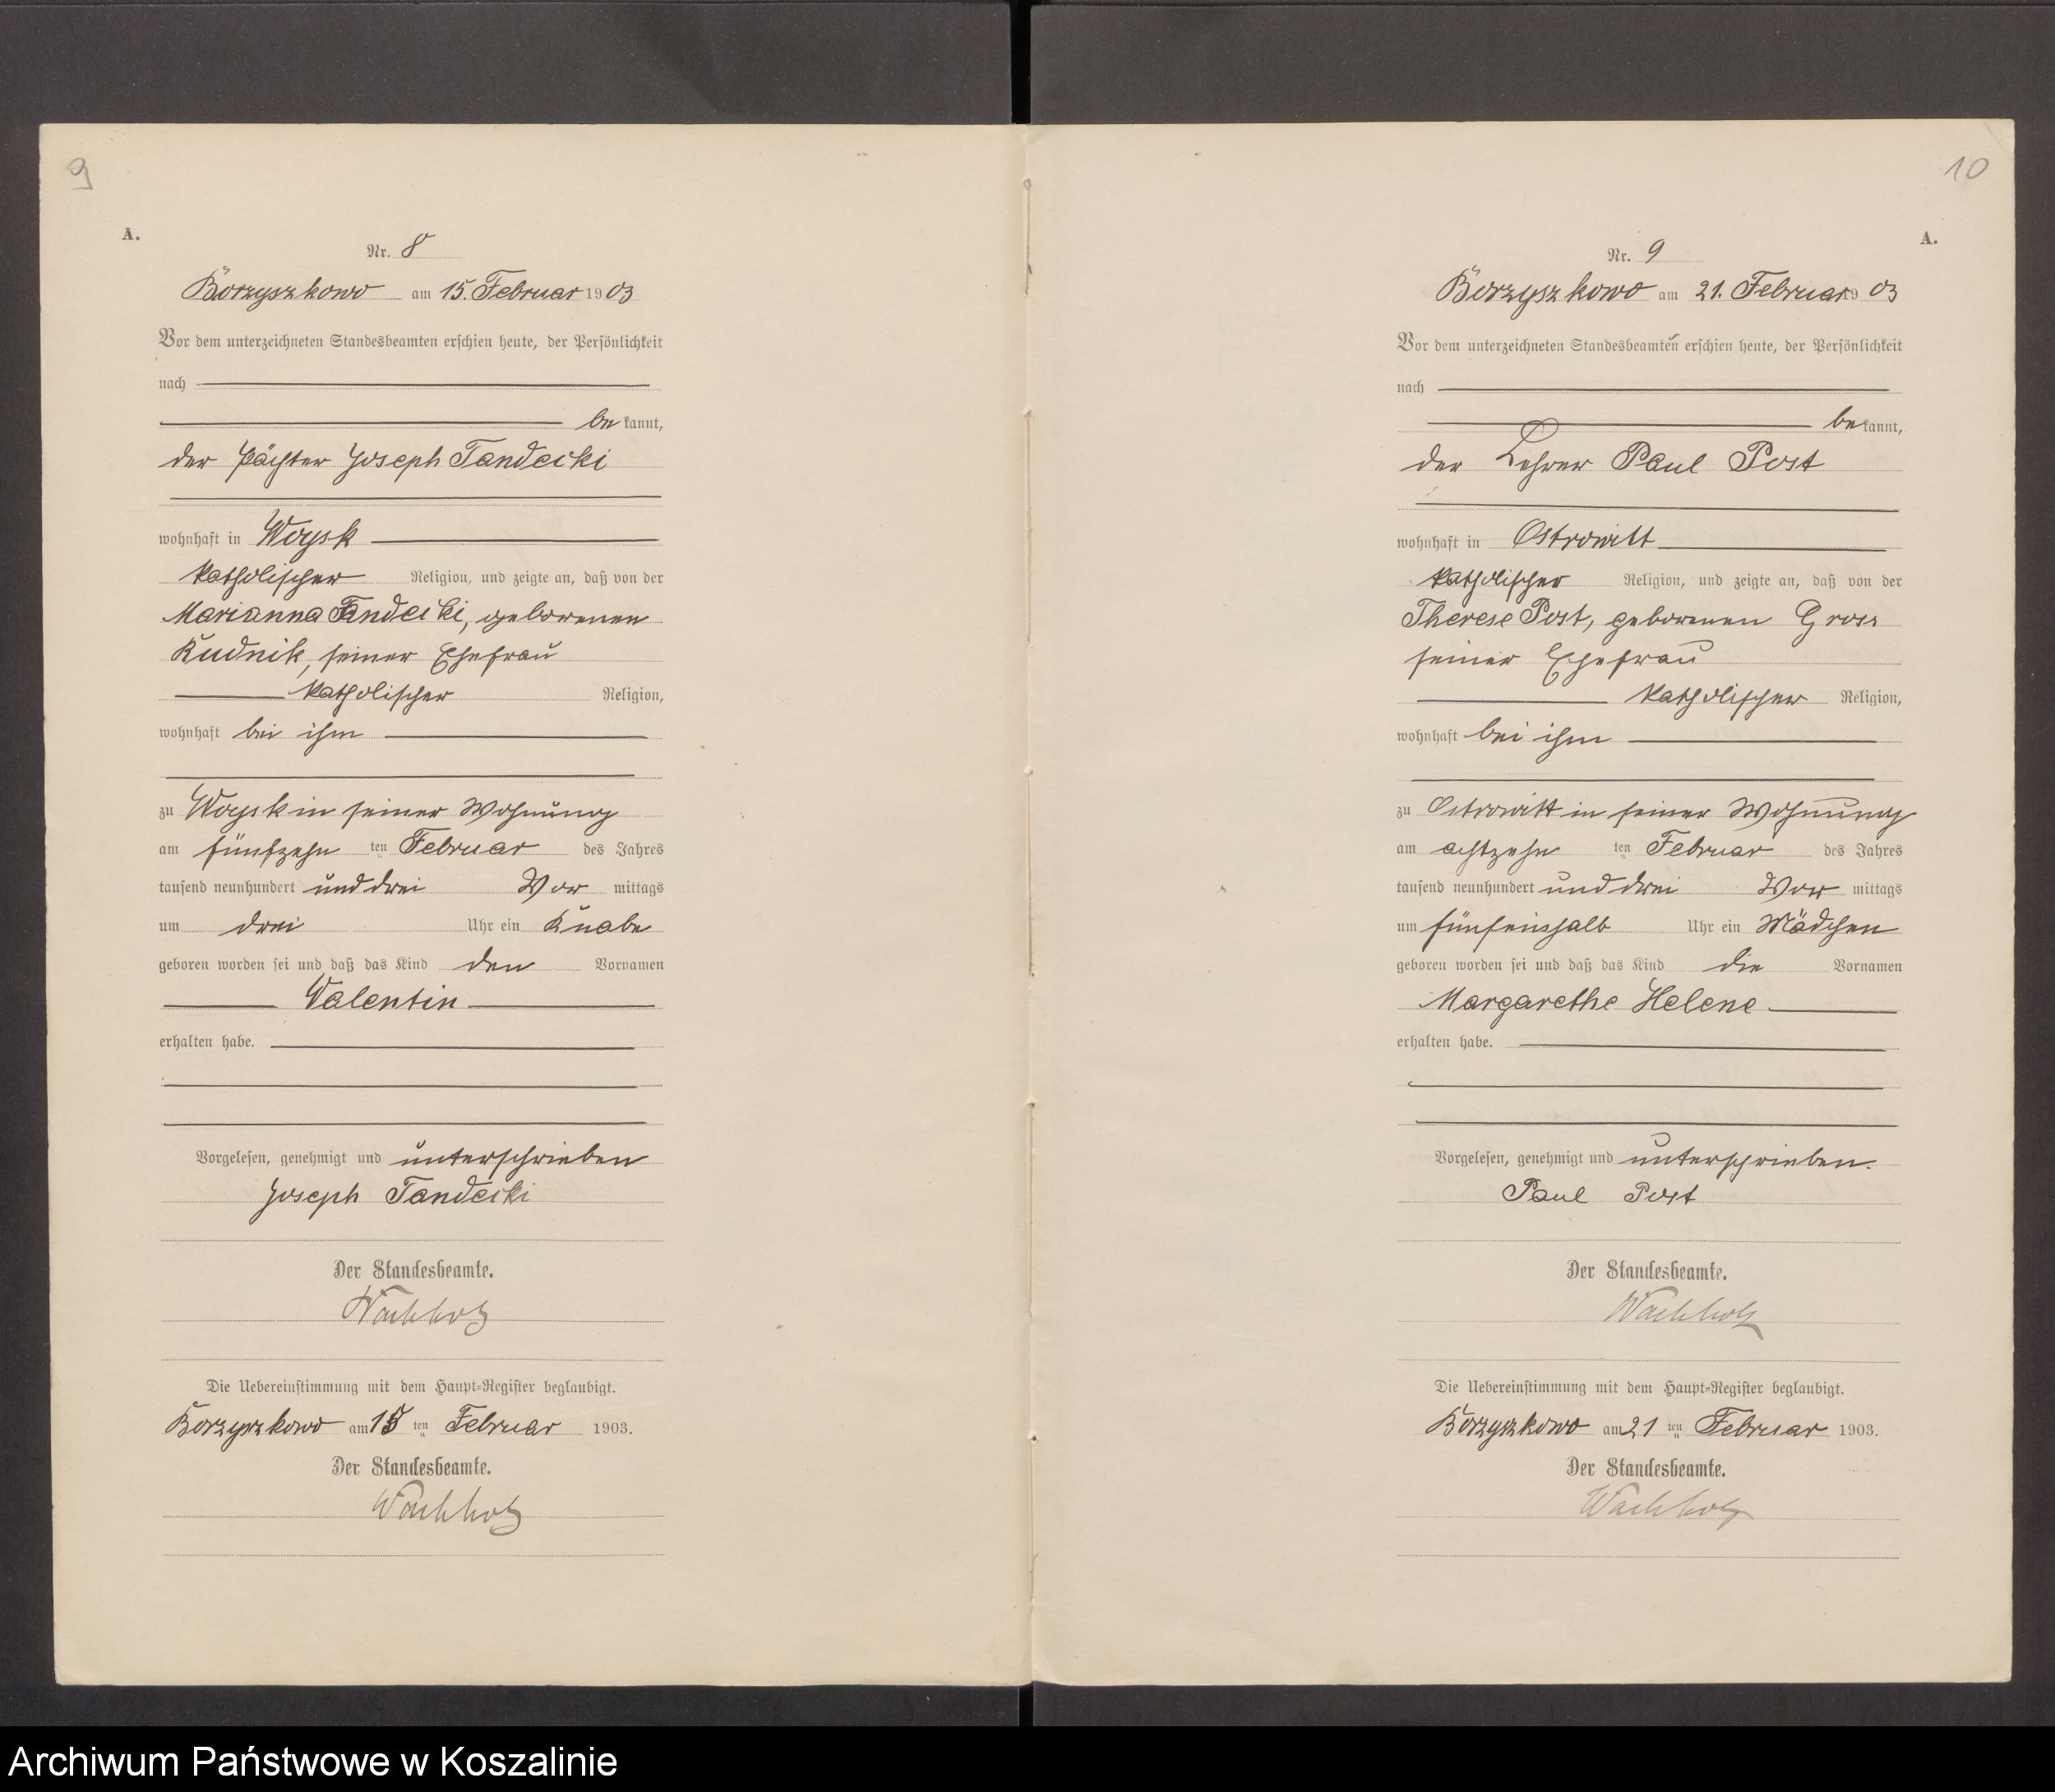 9
A.
Nr. 8
Borzyszkowo am 15. Februar 1903
Vor dem unterzeichneten Standesbeamten erschien heute, der Persönlichkeit
nach
be kannt,
der Pächter Joseph Tandecki
wohnhaft in Woysk
katholischer Religion, und zeigte an, daß von der
Marianna Tandecki, geborenen
Kudnik, seiner Ehefrau
katholischer Religion,
wohnhaft bei ihm
zu Woysk in seiner Wohnung
am fünfzehn ten Februar des Jahres
tausend neunhundert und drei Vor mittags
um drei Uhr ein Knabe
geboren worden sei und daß das Kind den Vornamen
Valentin
erhalten habe.
Vorgelesen, genehmigt und unterschrieben
Joseph Tandecki
Der Standesbeamte.
Wachholz
Die Uebereinstimmung mit dem Haupt-Register beglaubigt.
Borzyszkowo am 15 ten Februar 1903.
Der Standesbeamte.
Wachholz
10
A.
Nr. 9
Borzyszkowo am 21. Februar 1903
Vor dem unterzeichneten Standesbeamten erschien heute, der Persönlichkeit
nach
be kannt,
der Lehrer Paul Post
wohnhaft in Ostrowitt
katholischer Religion, und zeigte an, daß von der
Therese Post, geborenen Gross
seiner Ehefrau
katholischer Religion,
wohnhaft bei ihm
zu Ostrowitt in seiner Wohnung
am achtzehn ten Februar des Jahres
tausend neunhundert und drei Vor mittags
um fünfeinhalb Uhr ein Mädchen
geboren worden sei und daß das Kind die Vornamen
Margarethe Helene
erhalten habe.
Vorgelesen, genehmigt und unterschrieben.
Paul Post
Der Standesbeamte.
Wachholz
Die Uebereinstimmung mit dem Haupt-Register beglaubigt.
Borzyszkowo am 21 ten Februar 1903.
Der Standesbeamte.
Wachholz
Archiwum Państwowe w Koszalinie